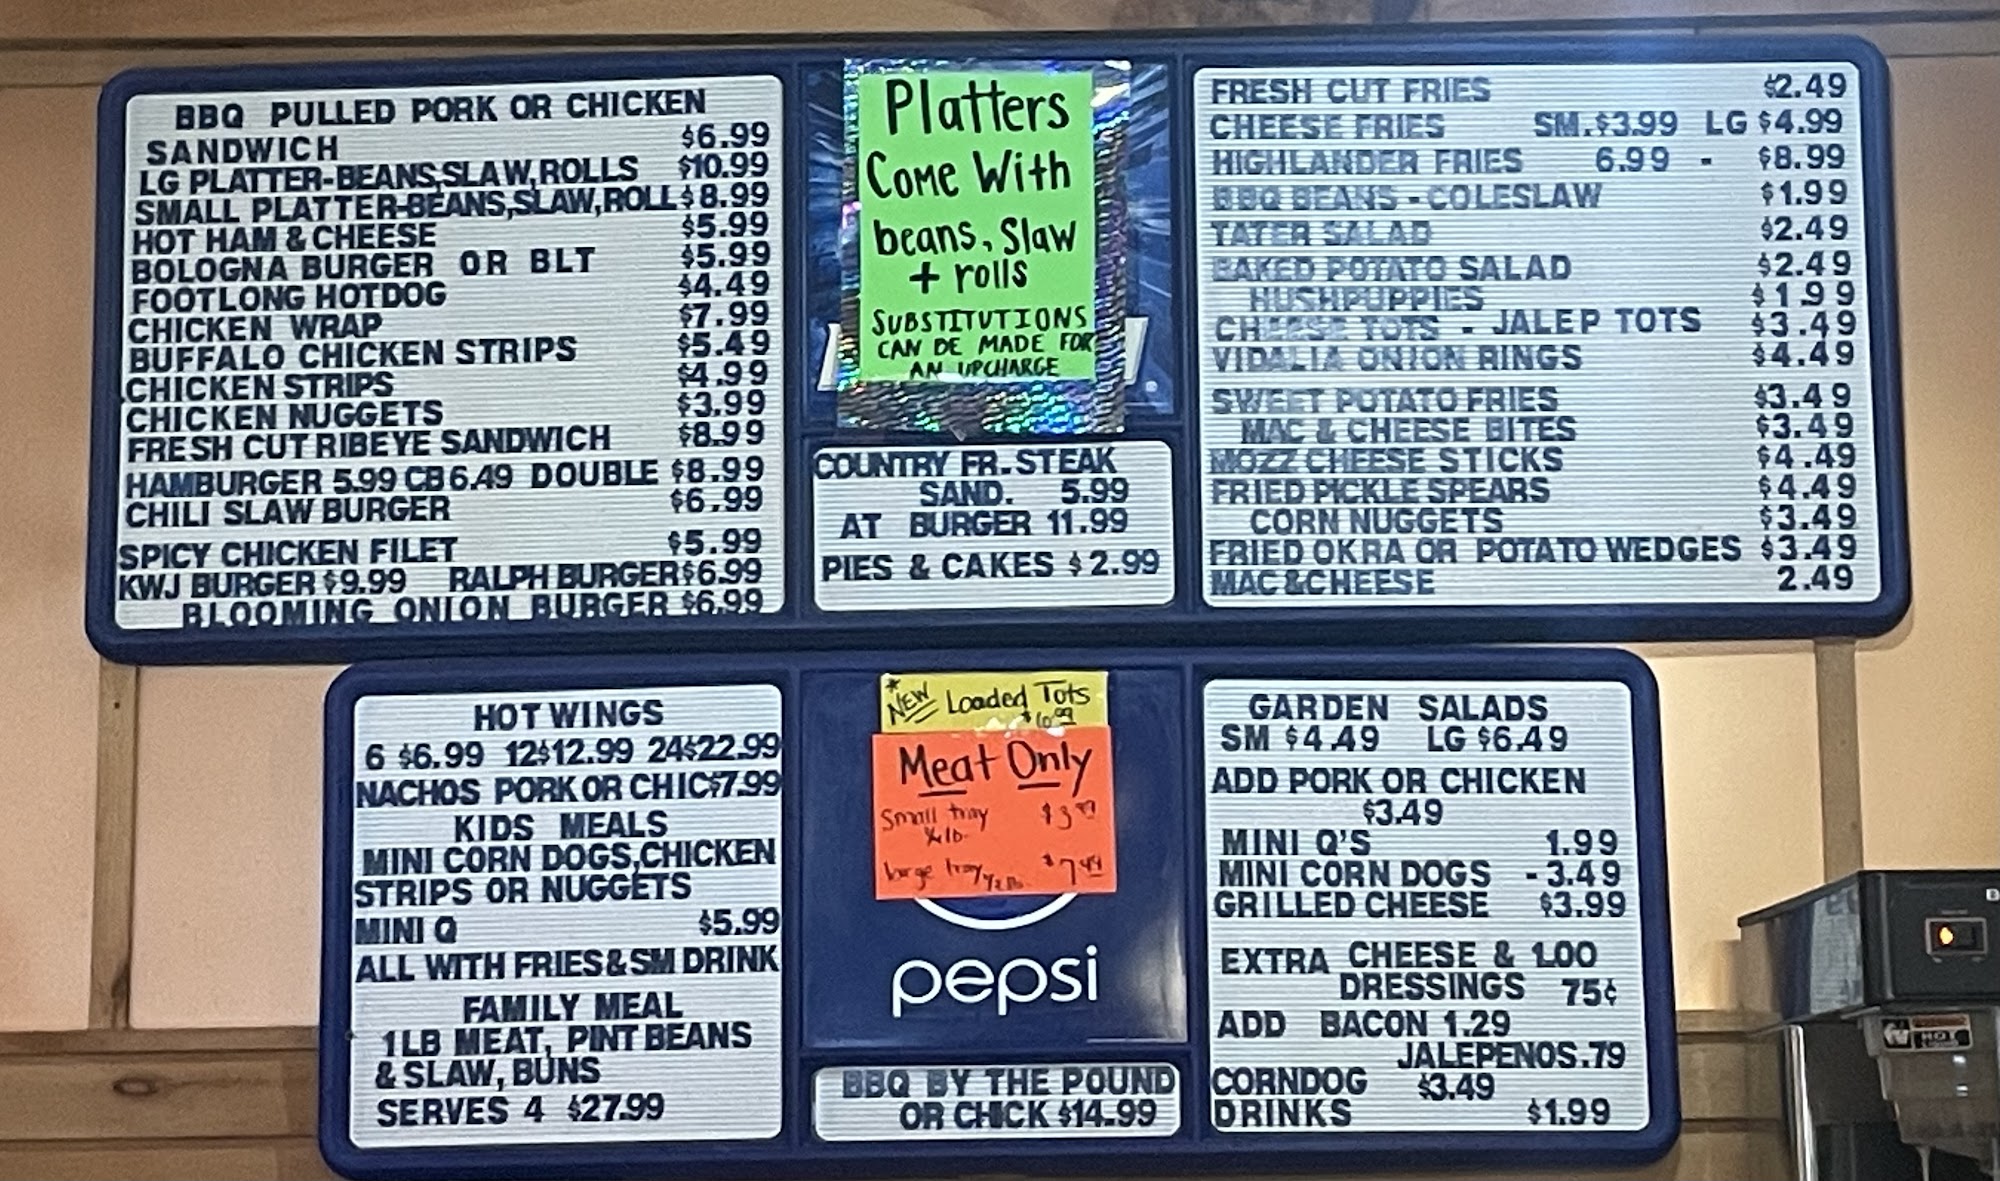 BBQ PULLED PORK OR CHICKEN
SANDWICH $6.99
LG PLATTER-BEANS,SLAW,ROLLS $10.99
SMALL PLATTER-BEANS,SLAW,ROLL $8.99
HOT HAM & CHEESE $5.99
BOLOGNA BURGER OR BLT $5.99
FOOTLONG HOTDOG $4.49
CHICKEN WRAP $7.99
BUFFALO CHICKEN STRIPS $5.49
CHICKEN STRIPS $4.99
CHICKEN NUGGETS $3.99
FRESH CUT RIBEYE SANDWICH $8.99
HAMBURGER 5.99 CB 6.49 DOUBLE $8.99
CHILI SLAW BURGER $6.99
SPICY CHICKEN FILET $5.99
KWJ BURGER $9.99 RALPH BURGER $6.99
BLOOMING ONION BURGER $6.99
Platters
Come With
beans, Slaw
+ rolls
SUBSTITUTIONS
CAN BE MADE FOR
AN UPCHARGE
COUNTRY FR. STEAK
SAND. 5.99
AT BURGER 11.99
PIES & CAKES $2.99
FRESH CUT FRIES $2.49
CHEESE FRIES SM.$3.99 LG $4.99
HIGHLANDER FRIES 6.99 - $8.99
BBQ BEANS - COLESLAW $1.99
TATER SALAD $2.49
BAKED POTATO SALAD $2.49
HUSHPUPPIES $1.99
CHEESE TOTS - JALEP TOTS $3.49
VIDALIA ONION RINGS $4.49
SWEET POTATO FRIES $3.49
MAC & CHEESE BITES $3.49
MOZZ CHEESE STICKS $4.49
FRIED PICKLE SPEARS $4.49
CORN NUGGETS $3.49
FRIED OKRA OR POTATO WEDGES $3.49
MAC&CHEESE 2.49
HOT WINGS
6 $6.99 12$12.99 24$22.99
NACHOS PORK OR CHIC$7.99
KIDS MEALS
MINI CORN DOGS,CHICKEN
STRIPS OR NUGGETS
MINI Q $5.99
ALL WITH FRIES&SM DRINK
FAMILY MEAL
1LB MEAT, PINT BEANS
& SLAW, BUNS
SERVES 4 $27.99
*NEW Loaded Tots
Meat Only
Small tray $3.99
large tray 1/2 lb. $7.49
pepsi
BBQ BY THE POUND
OR CHICK $14.99
GARDEN SALADS
SM $4.49 LG $6.49
ADD PORK OR CHICKEN
$3.49
MINI Q'S 1.99
MINI CORN DOGS - 3.49
GRILLED CHEESE $3.99
EXTRA CHEESE & 1.00
DRESSINGS 75¢
ADD BACON 1.29
JALEPENOS .79
CORNDOG $3.49
DRINKS $1.99
HOT